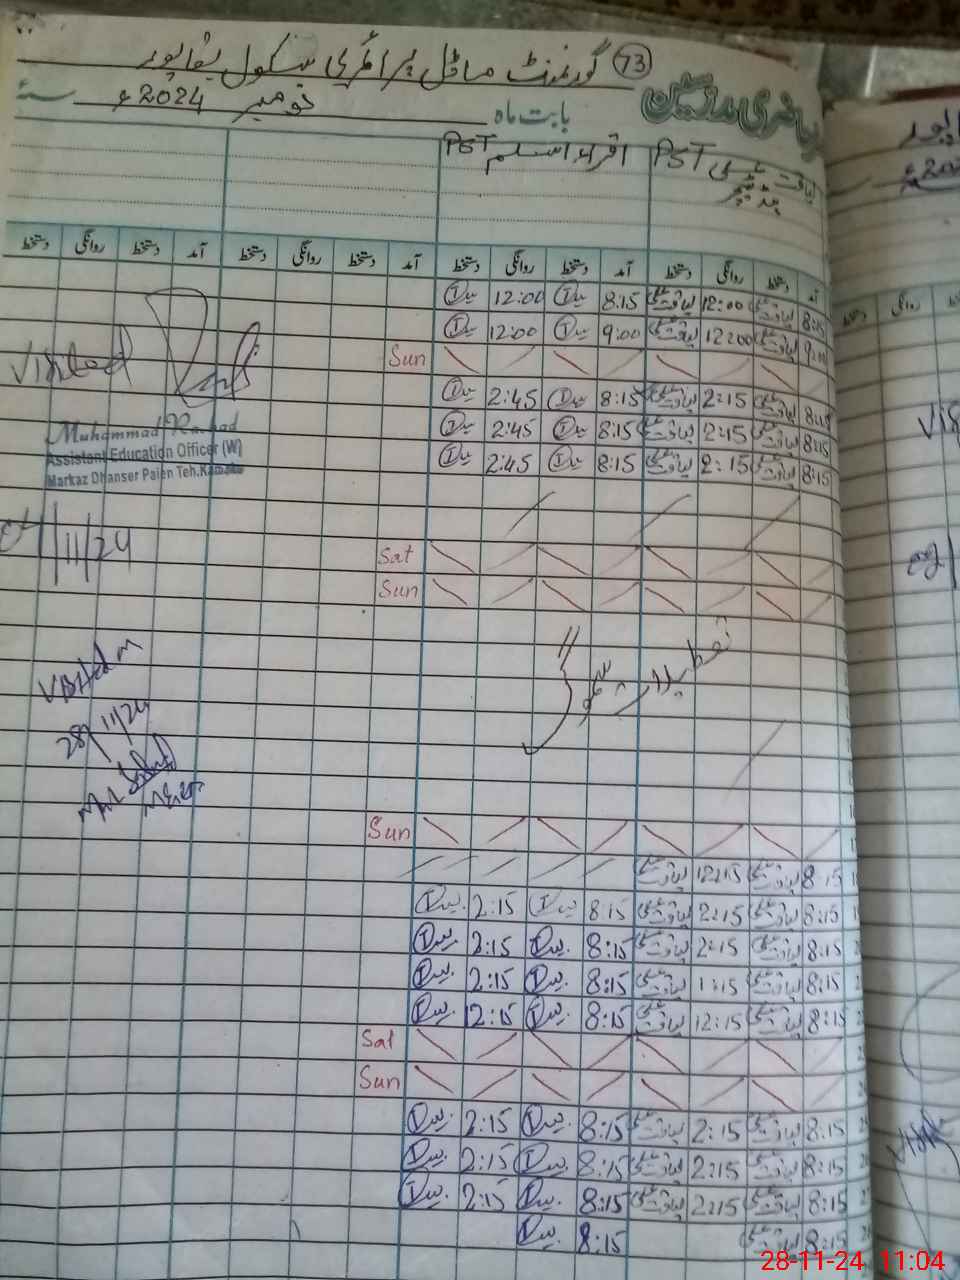 73 گورنمنٹ ماڈل پرائمری سکول بقاپور
حاضری مدرسین
بابت ماہ نومبر 2024ء
لیاقت علی PST اقراء اسلم PST
ہیڈ ٹیچر
آمد دستخط روانگی دستخط آمد دستخط روانگی دستخط آمد دستخط روانگی دستخط آمد دستخط روانگی دستخط
8:15 لیاقت علی 12:00 لیاقت علی 8:15 12:00
9:00 لیاقت علی 12:00 لیاقت علی 9:00 12:00
Sun
8:15 لیاقت علی 2:15 لیاقت علی 8:15 2:45
8:15 لیاقت علی 2:45 لیاقت علی 8:15 2:45
8:15 لیاقت علی 2:15 لیاقت علی 8:15 2:45
Visited
Muhammad Rashad
Assistant Education Officer (W)
Markaz Dhanser Paien Teh.Kamoke
/11/24
Sat
Sun
تعطیلات سموگ
Visited
28/11/24
Sun
8:15 لیاقت علی 12:15 لیاقت علی
8:15 لیاقت علی 2:15 لیاقت علی 8:15 2:15
8:15 لیاقت علی 2:15 لیاقت علی 8:15 2:15
8:15 لیاقت علی 1:15 لیاقت علی 8:15 2:15
8:15 لیاقت علی 12:15 لیاقت علی 8:15 12:15
Sat
Sun
8:15 لیاقت علی 2:15 لیاقت علی 8:15 2:15
8:15 لیاقت علی 2:15 لیاقت علی 8:15 2:15
8:15 لیاقت علی 2:15 لیاقت علی 8:15 2:15
8:15 لیاقت علی 8:15
28-11-24 11:04